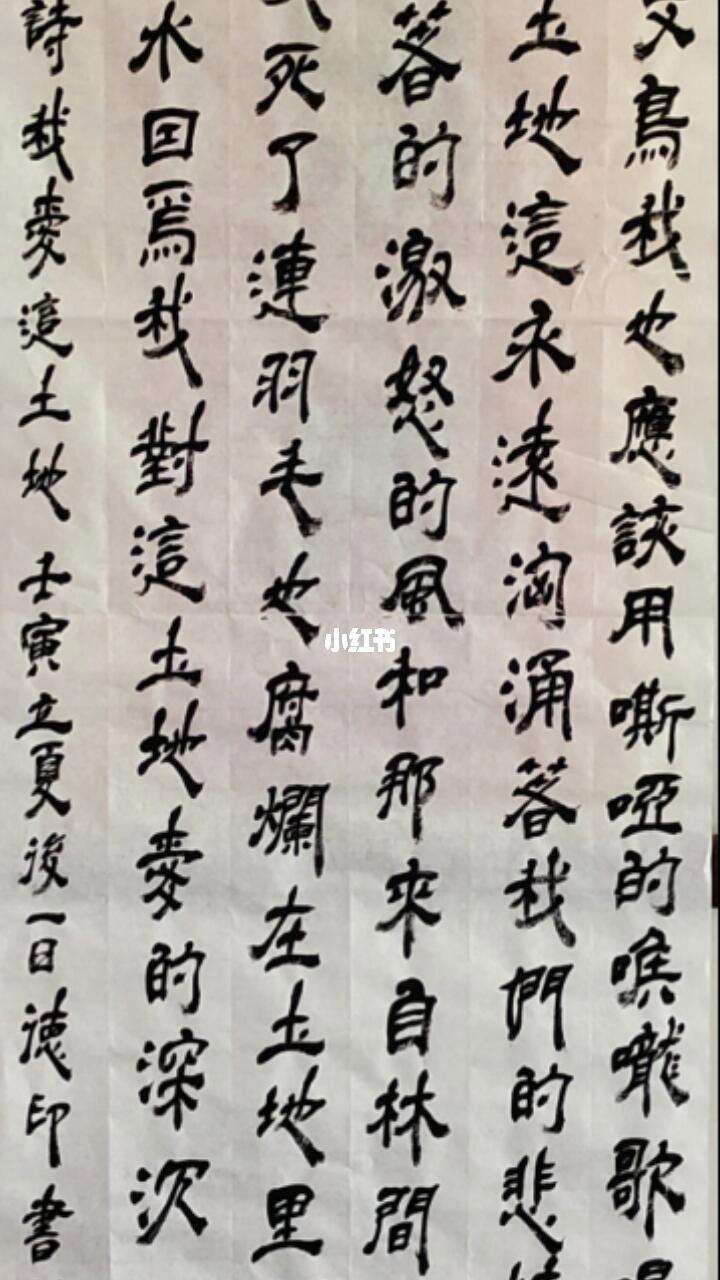 鳥我也應該用嘶啞的喉嚨歌
土地這永遠洶涌著我們的悲
著的激怒的風和那來自林間
死了連羽毛也腐爛在土地里
水因為我對這土地愛的深沉
詩我愛這土地 壬寅立夏後一日德印書
小红书